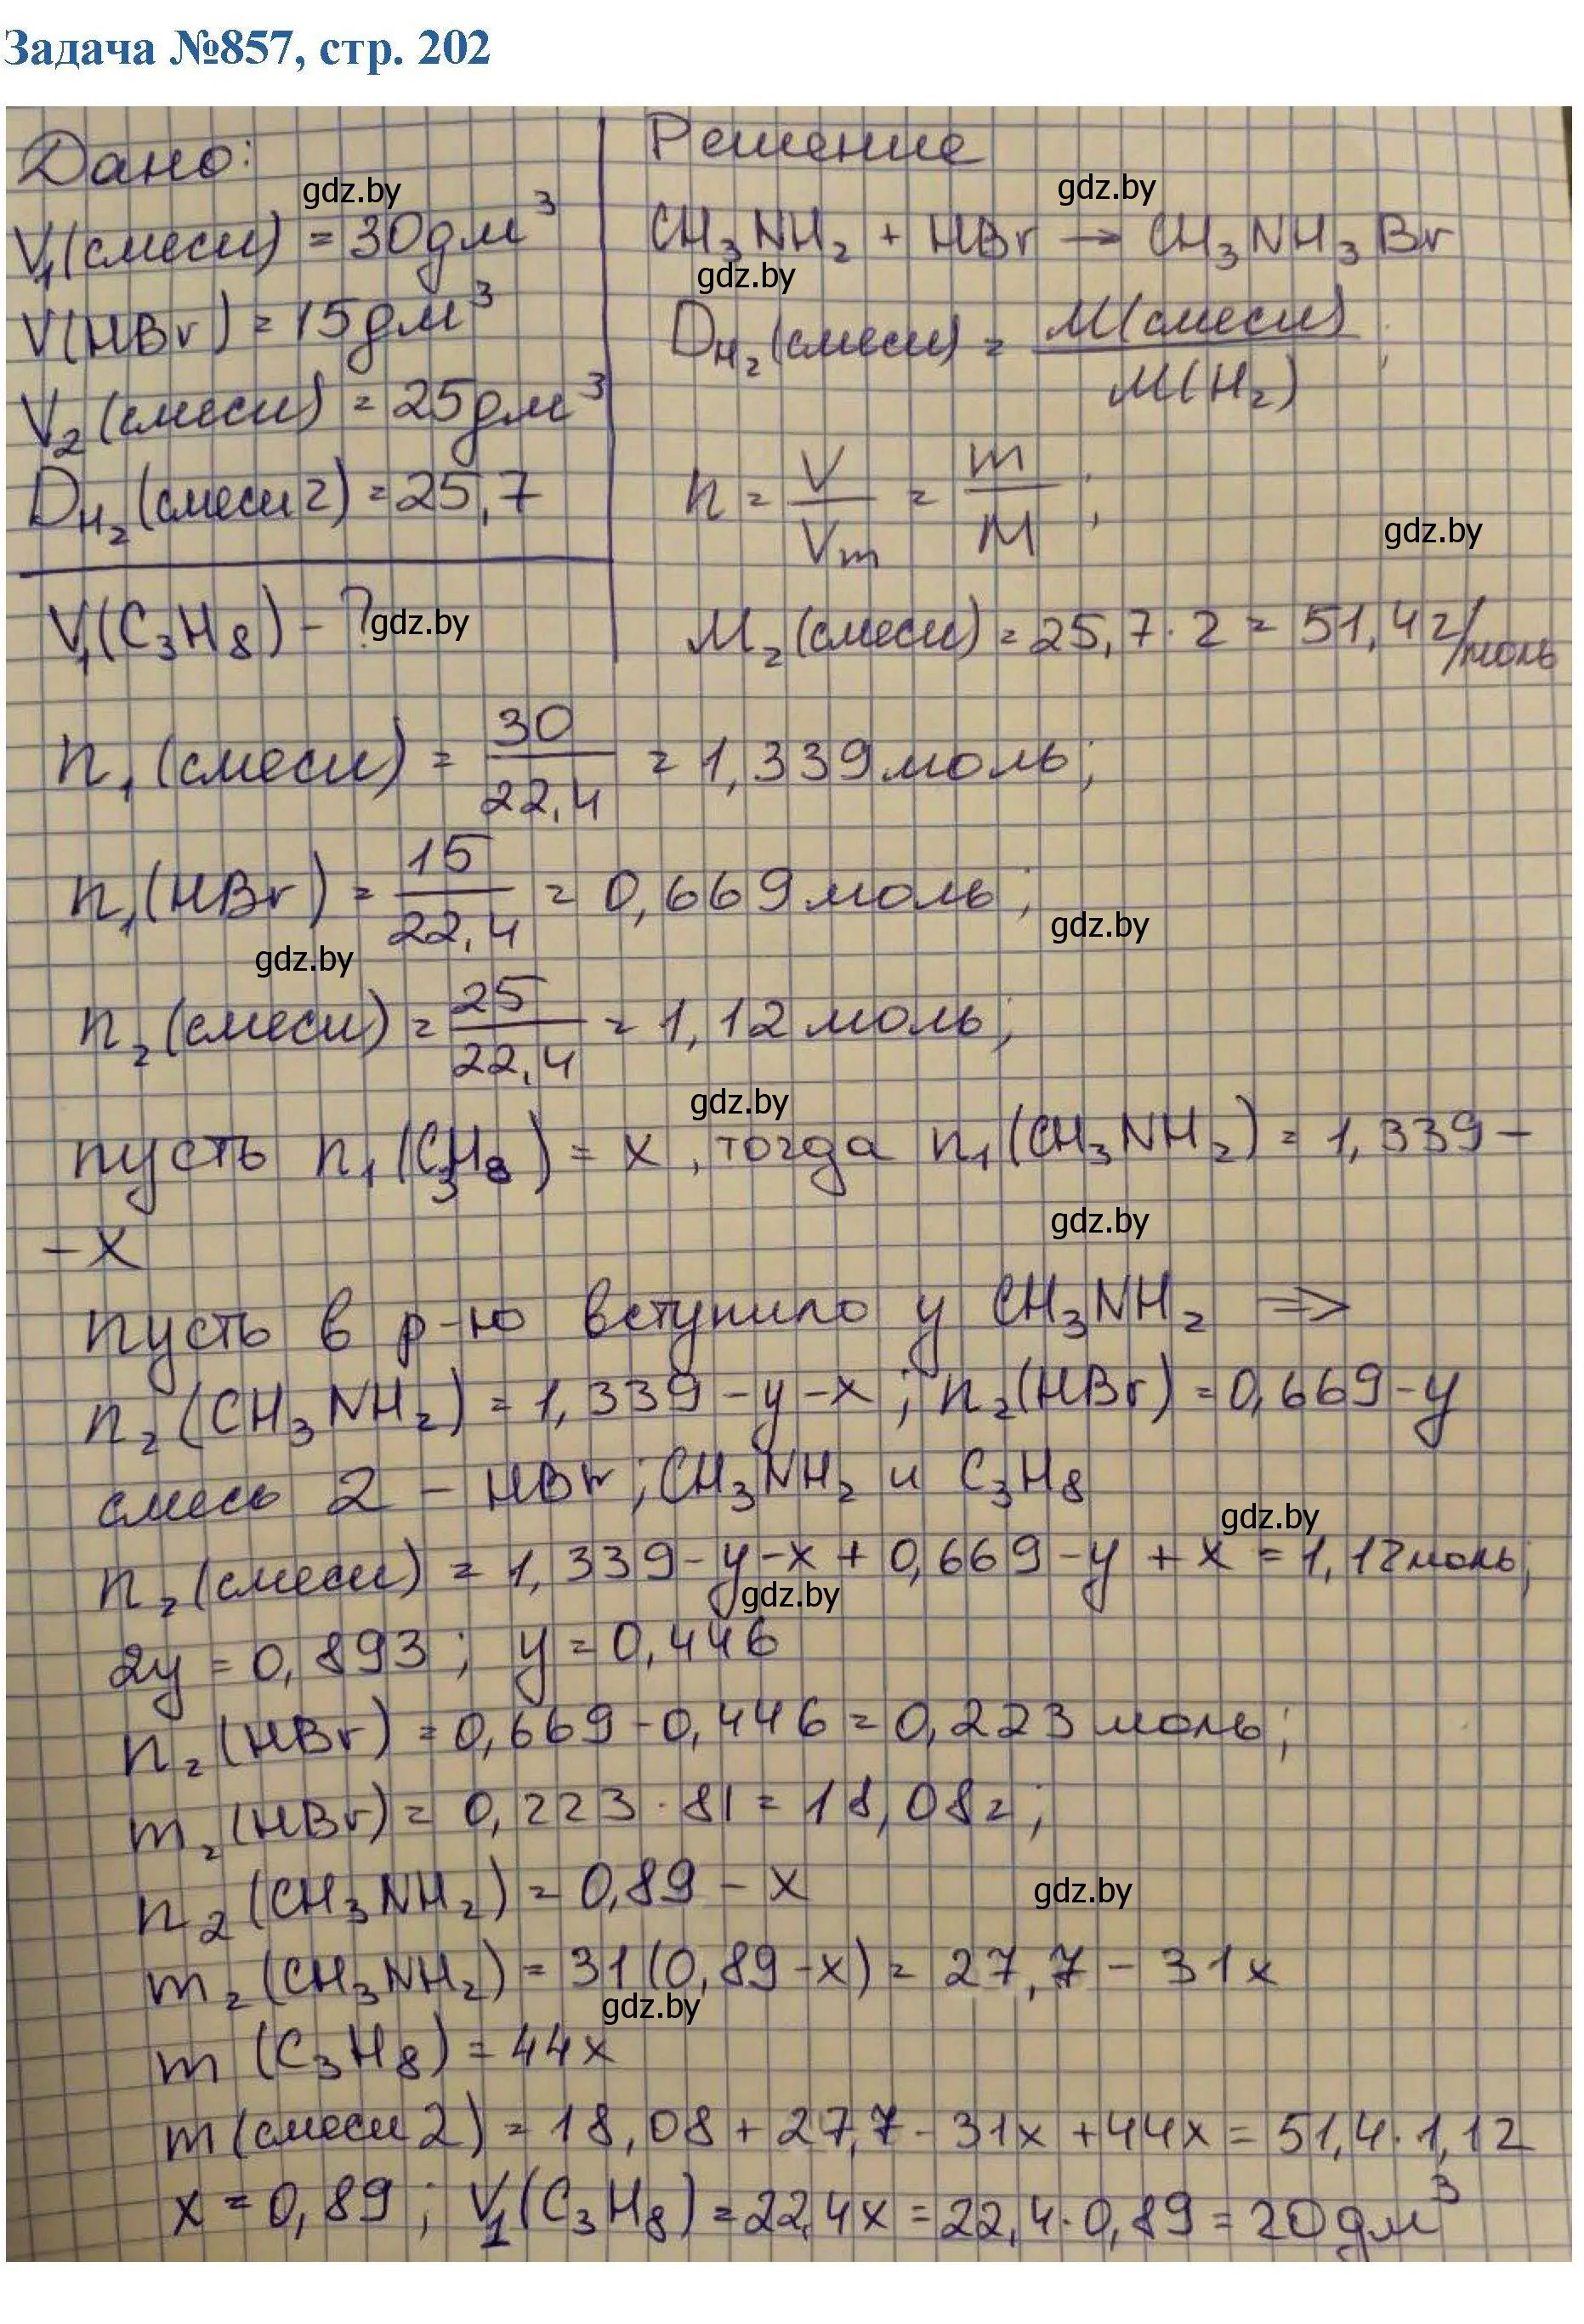 Задача №857, стр. 202
Дано:
V₁(смеси) = 30дм³
V(HBr) = 15дм³
V₂(смеси) = 25дм³
D_H₂(смеси 2) = 25,7
V₁(C₃H₈) - ?
Решение
CH₃NH₂ + HBr → CH₃NH₃Br
D_H₂(смеси) = M(смеси)/M(H₂);
n = V/Vm = m/M;
M₂(смеси) = 25,7·2 = 51,4г/моль
n₁(смеси) = 30/22,4 = 1,339моль;
n₁(HBr) = 15/22,4 = 0,669моль;
n₂(смеси) = 25/22,4 = 1,12моль;
пусть n₁(C₃H₈) = x, тогда n₁(CH₃NH₂) = 1,339 -
- x
пусть в р-ю вступило y CH₃NH₂ =>
n₂(CH₃NH₂) = 1,339 - y - x; n₂(HBr) = 0,669 - y
смесь 2 - HBr; CH₃NH₂ и C₃H₈
n₂(смеси) = 1,339 - y - x + 0,669 - y + x = 1,12моль;
2y = 0,893; y = 0,446
n₂(HBr) = 0,669 - 0,446 = 0,223 моль;
m₂(HBr) = 0,223·81 = 18,08г;
n₂(CH₃NH₂) = 0,89 - x
m₂(CH₃NH₂) = 31(0,89 - x) = 27,7 - 31x
m(C₃H₈) = 44x
m(смеси 2) = 18,08 + 27,7 - 31x + 44x = 51,4·1,12
x = 0,89; V₁(C₃H₈) = 22,4x = 22,4·0,89 = 20дм³
gdz.by
gdz.by
gdz.by
gdz.by
gdz.by
gdz.by
gdz.by
gdz.by
gdz.by
gdz.by
gdz.by
gdz.by
gdz.by